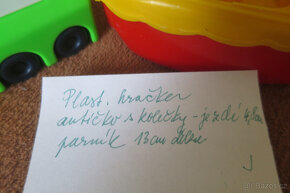 Plast. hraček
autíčko s kolečky - jezdí 4,8cm
parník 13cm délka